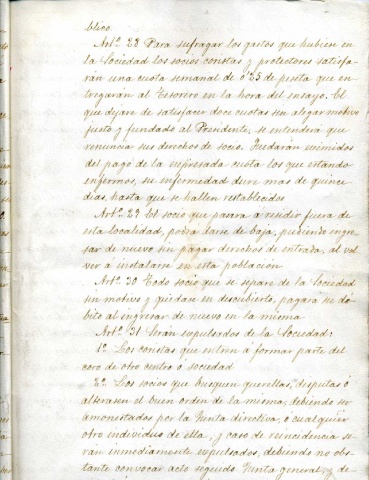 blico.
Artº. 28 Para sufragar los gastos que hubiere en
la Sociedad los socios coristas y protectores satisfa-
rán una cuota semanal de 0'25 de peseta que en-
tregarán al Tesorero en la hora del ensayo. El
que dejare de satisfacer doce cuotas sin alegar motivo
justo y fundado al Presidente, se entenderá que
renuncia sus derechos de socio. Quedarán eximidos
del pago de la expresada cuota los que estando
enfermos, su enfermedad dure mas de quince
dias, hasta que se hallen restablecidos
Artº. 29 El socio que pasara a residir fuera de
esta localidad, podrá darse de baja, pudiendo ingre-
sar de nuevo sin pagar derechos de entrada, al vol
ver á instalarse en esta población
Artº. 30 Todo socio que se separe de la Sociedad
sin motivo y quedara en descubierto, pagará su dé-
bito al ingresar de nuevo en la misma
Artº. 31 Serán expulsados de la Sociedad:
1º. Los coristas que entren á formar parte del
coro de otro centro ó sociedad
2º. Los socios que busquen querellas, disputas ó
alterasen el buen orden de la misma, debiendo ser
amonestados por la Junta directiva, ó cualquier
otro individuo de ella, y caso de reincidencia se-
rán inmediamente expulsados, debiendo no obs-
tante convocar acto seguido Junta general y de-